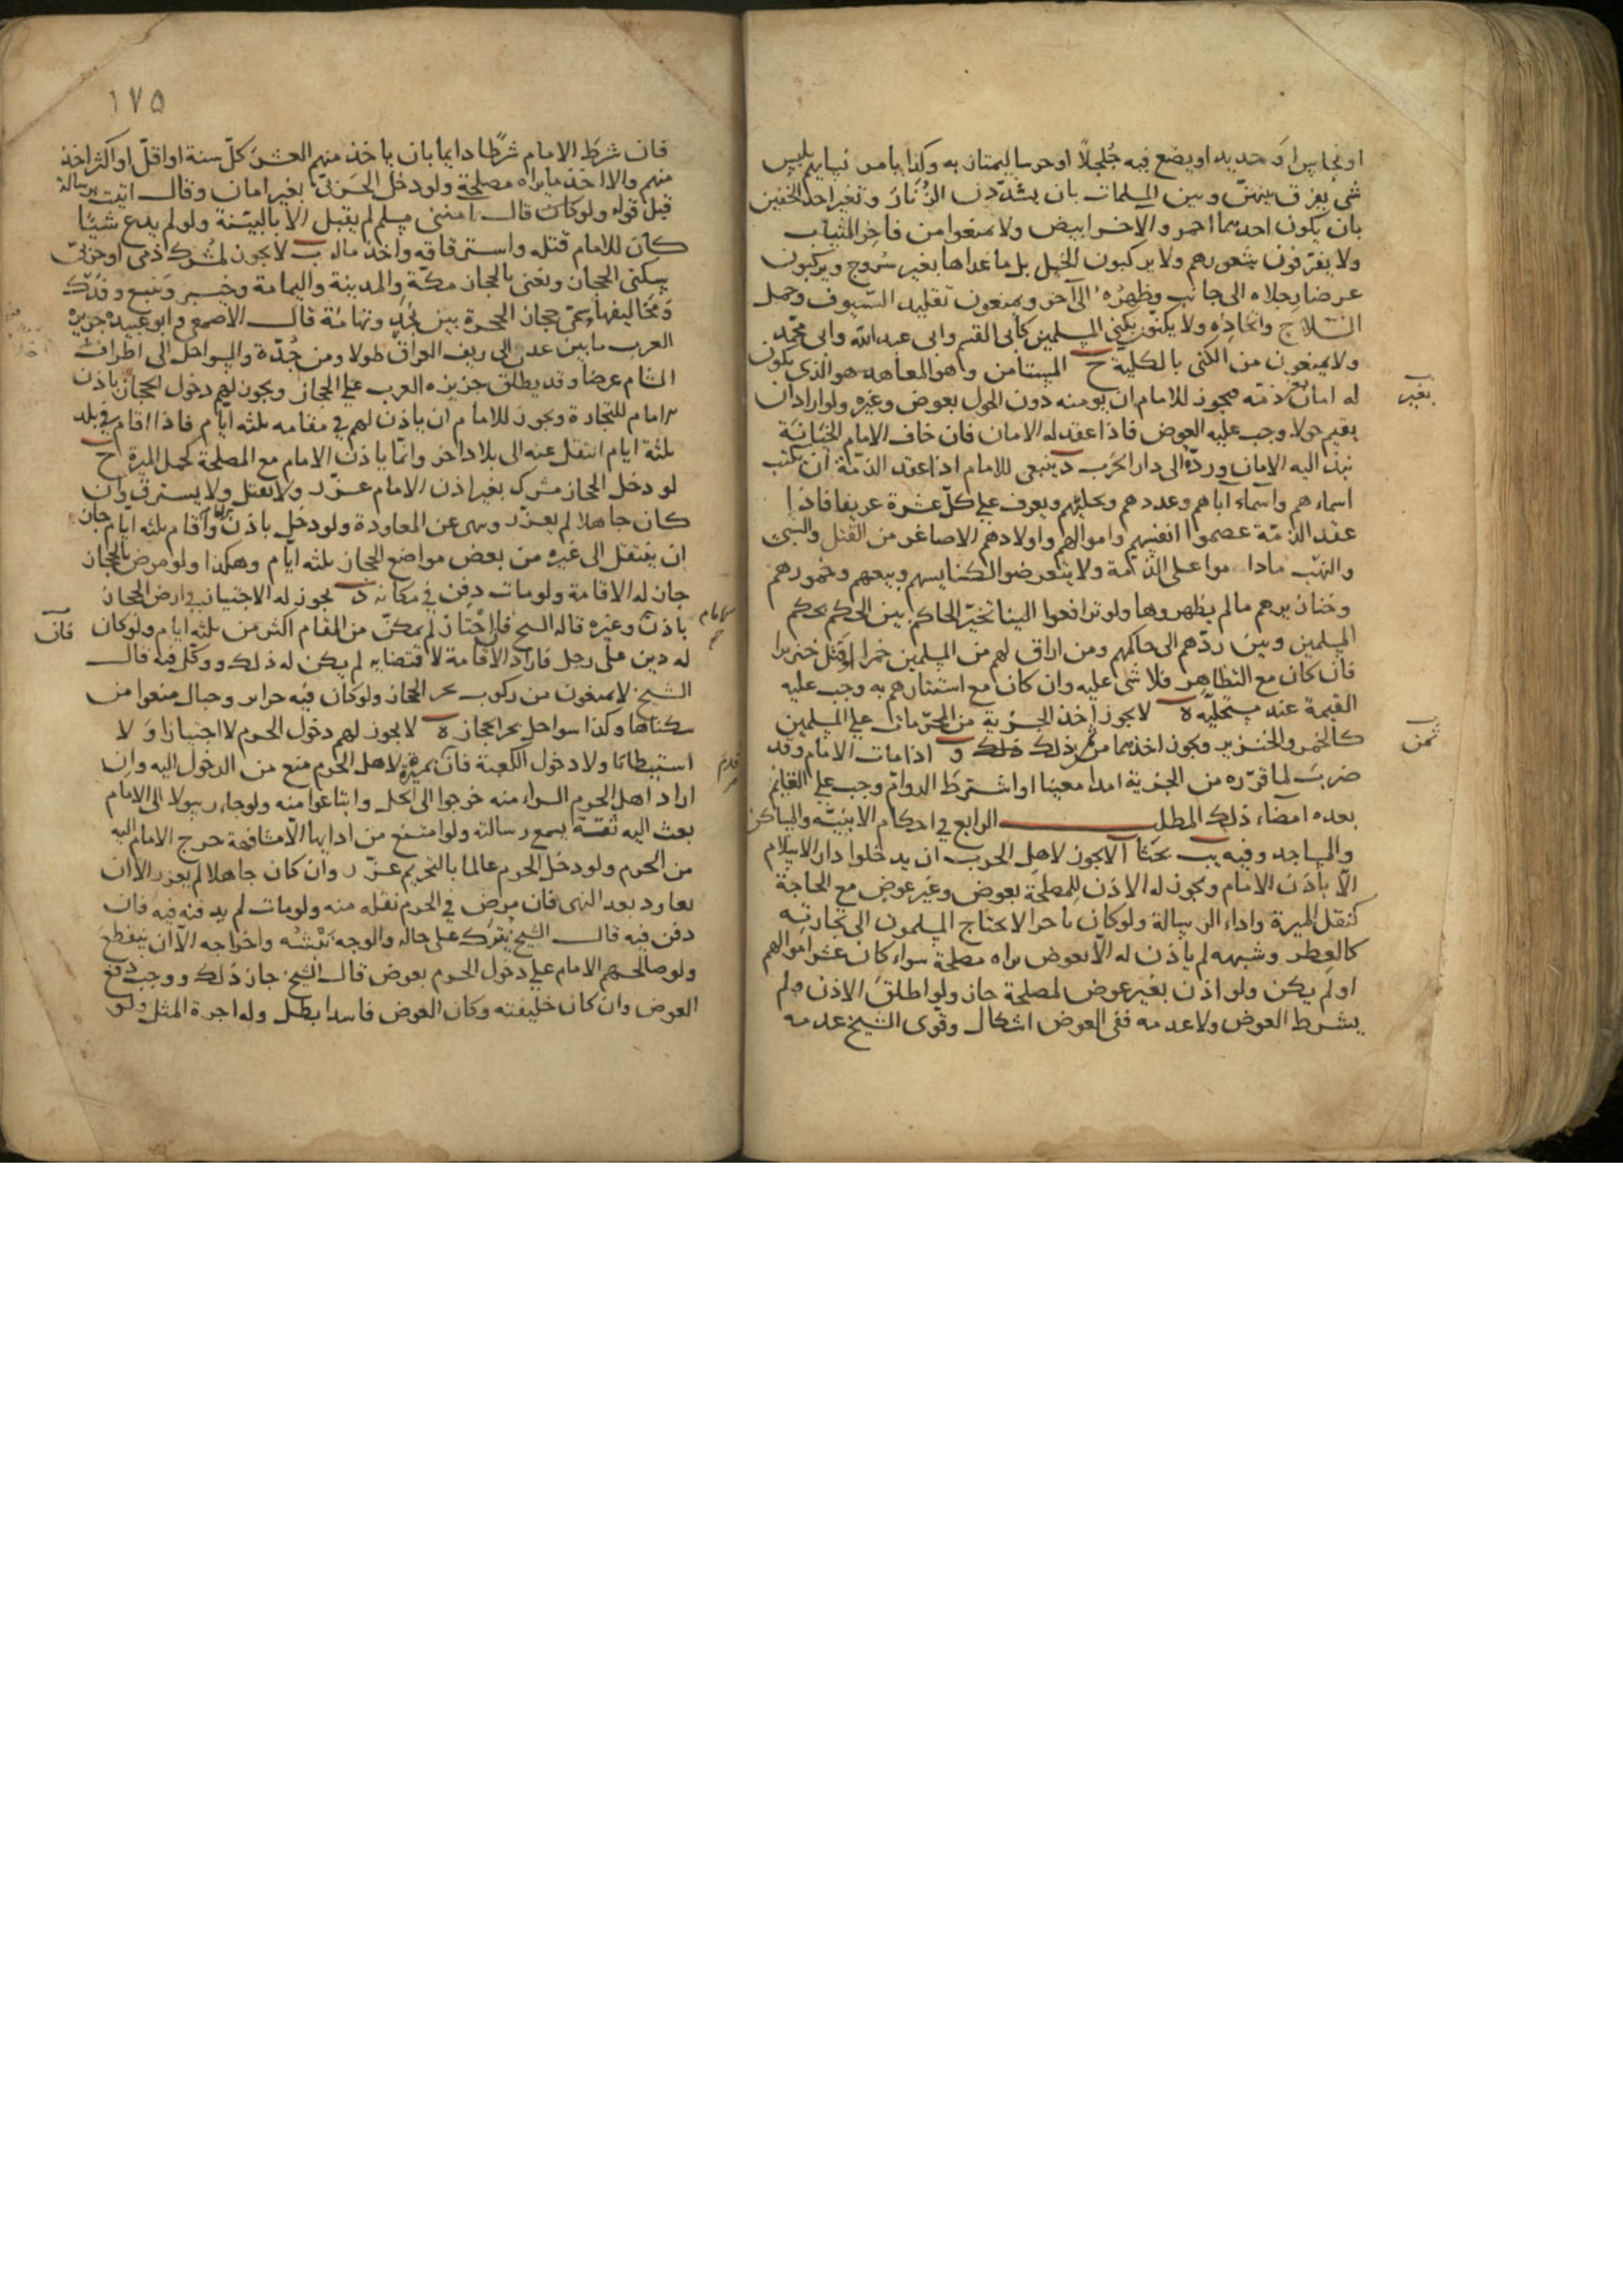 او نحاس او حديد او يضع فيه جُلجلًا او جرسا ليمتاز به وكذا يامر نساءهم بلبس
شى يفرق بينهنّ وبين المسلمات بان يشدّدن الزُنّار وتغير احد الخفين
بان يكون احدهما احمر والاخر ابيض ولا يمنعوا من فاخر الثياب
ولا يفرّقون شعورهم ولا يركبون الخيل بل ما عداها بغير سُروج ويركبون
عرضا رجلاه الى جانب وظهره الى آخر ويمنعون تقليد السّيوف وحمل
السّلاح واتخاذه ولا يكنّون بكنى المسلمين كابى القسم وابى عبد الله وابى محمّد
ولا يمنعون من الكنى بالكلية ح المستامن وهو المعاهد هو الذى يكون
له امان بغير ذمّة فيجوز للامام ان يومنه دون الحول بعوض وغيره ولو اراد ان
يقيم حولا وجب عليه العوض فاذا عقد له الامان فان خاف الامام الخيانة
نبذ اليه الامان وردّه الى دار الحَرب د ينبغى للامام اذا عقد الذمّة ان يكتب
اسماءهم واسماء آبائهم وعددهم وبحليتهم ويعرف على كلّ عشرة عريفا فاذا
عقد الذمّة عصموا انفسهم واموالهم واولادهم الاصاغر من القتل والسبى
والنهب ماداموا على الذمّة ولا يتعرض لكنايسهم وبيعهم وخمورهم
وخنازيرهم ما لم يظهروها ولو ترافعوا الينا تخيّر الحاكم بين الحكم بحكم
المسلمين وبين ردّهم الى حاكمهم ومن اراق لهم من المسلمين خمرا او قتل خنزيرا
فان كان مع التظاهر فلا شى عليه وان كان مع استتارهم به وجب عليه
القيمة عند مستحلّيه ه لا يجوز اخذ الجزية من المحرّمات على المسلمين
كالخمر والخنزير ويجوز اخذهما من ثمن ذلك و اذا مات الامام وقد
ضرب لما قرّره من الجزية امدا معينا او اشترط الدوام وجب على القايم
بعده امضاء ذلك المطلب الرابع فى احكام الابنيّة والمساكن
والمساجد وفيه يب بحثا ا لا يجوز لاهل الحرب ان يدخلوا دار الاسلام
الّا باذن الامام ويجوز له الاذن للمصلحة بعوض وغير عوض مع الحاجة
كنقل الميرة واداء الرسالة ولو كان تاجرا لا يحتاج المسلمون الى تجارته
كالعطر وشبهه لم ياذن له الّا بعوض يراه مصلحة سواء كان عشر اموالهم
او لم يكن ولو اذن بغير عوض لمصلحة جاز ولو اطلق الاذن ولم
يشرط العوض ولا عدمه ففى العوض اشكال وقوى الشيخ عدمه
بغير
ثمن
١٧٥
فان شرط الامام شرطًا دايما بان ياخذ منهم العشر كلّ سنة او اقلّ او اكثر اخذ
منهم والا اخذ ما يراه مصلحة ولو دخل الحَربىّ بغير امان وقال اتيت برسالة
قبل قوله ولو كان قال امننى مسلم لم يقبل الّا بالبيّنة ولو لم يدع شيًا
كان للامام قتله واسترقاقه واخذ ماله ب لا يجوز لمشرك ذمى او حربىّ
سكنى الحجاز ونعنى بالحجاز مكّة والمدينة واليمامة وخيبر وينبع وفدك
ومخاليفها وسمّى حجازا لحجزه بين نجد وتهامة قال الاصمعى وابو عبيده جزيرة
العرب ما بين عدن الى ريف العراق طولا ومن جُدّة والسواحل الى اطراف
الشام عرضا وقد يطلق جزيره العرب على الحجاز ويجوز لهم دخول الحجاز باذن
الامام للتجارة ويجوز للامام ان ياذن لهم فى مقامه ثلثه ايّام فاذا اقام فى بلد
ثلثة ايام انتقل عنه الى بلاد اخر وانّما ياذن الامام مع المصلحة كحمل الميرة ج
لو دخل الحجاز مشرك بغير اذن الامام عزّر ولا يقتل ولا يسترق وان
كان جاهلا لم يعزّر ونهى عن المعاودة ولو دخل باذن واقام ثلثه ايام جاز
ان ينتقل الى غيره من بعض مواضع الحجاز ثلثه ايّام وهكذا ولو مرض بالحجاز
جاز له الاقامة ولو مات دفن فى مكانه د يجوز له الاجتياز فى ارض الحجاز
باذن وغيره قاله الشيخ فان اجتاز لم يمكّن من المقام اكثر من ثلثه ايام ولو كان
له دين على رجل فاراد الاقامة لاقتضايه لم يكن له ذلك ووكّل فيه قال
الشيخ لا يمنعون من ركوب بحر الحجاز ولو كان فيه جزاير وجبال منعوا من
سكناها وكذا سواحل بحر الحجاز ه لا يجوز لهم دخول الحرم لا اجتيازا ولا
استيطانا ولا دخول الكعبة فان قدم بميرة لاهل الحرم منع من الدخول اليه وان
اراد اهل الحرم الشراء منه خرجوا الى الحل وابتاعوا منه ولو جاء رسولا الى الامام
بعث اليه ثقة يسمع رسالته ولو امتنع من ادايها الّا مشافهة خرج الامام اليه
من الحرم ولو دخل الحرم عالما بالتحريم عزّر وان كان جاهلا لم يعزر الا ان
يعاود بعد النهى فان مرض فى الحرم نقله منه ولو مات لم يدفنه فيه فان
دفن فيه قال الشيخ يُترك على حاله والوجه نَبْشُه واخراجه الّا ان يتقطع
ولو صالحهم الامام على دخول الحرم بعوض قال الشيخ جاز ذلك ووجب دفع
العوض وان كان خليفته وكان العوض فاسدا بطل وله اجرة المثل ولو
الامام
فان
قدم